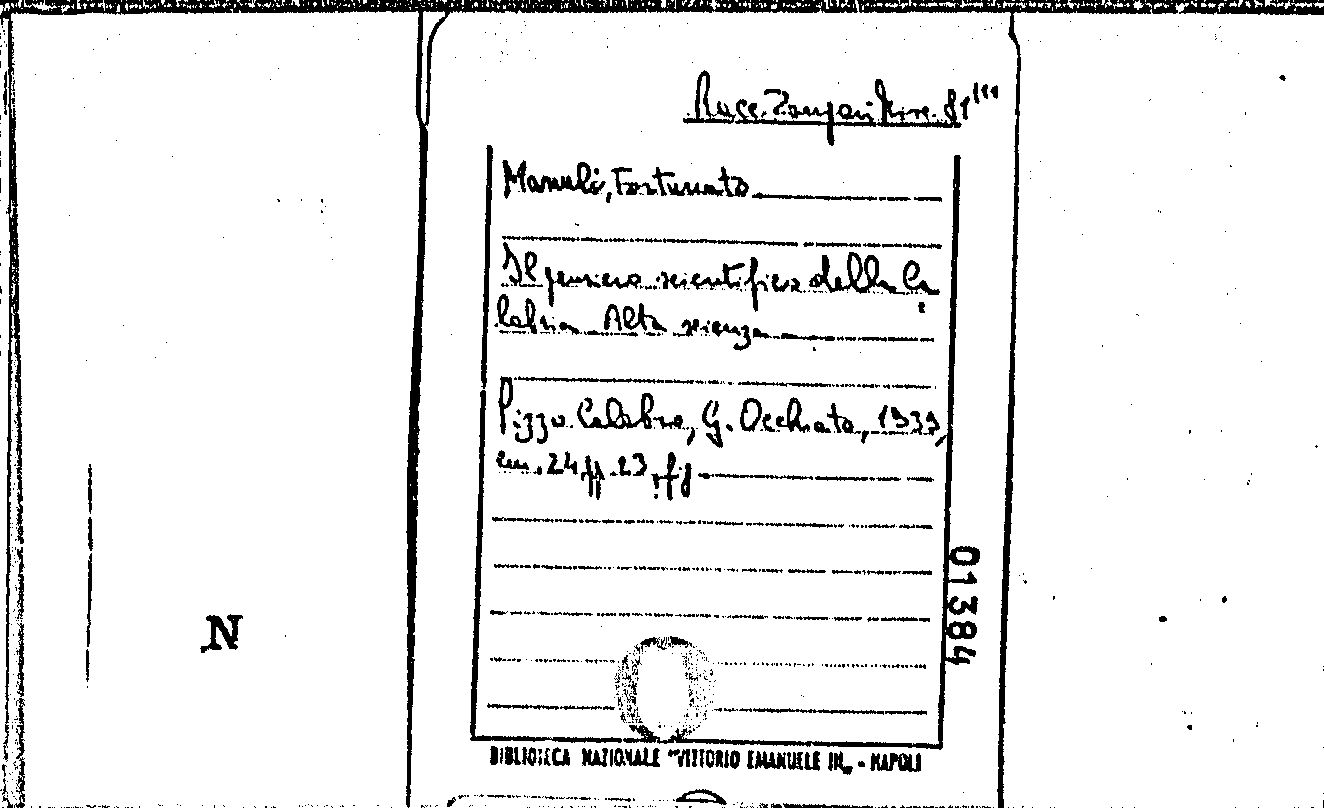 Race. Zangari Misc. 81
Manuli, Fortunato
Il pensiero scientifico della Ca
labria Alta scienza
Pizzo Calabro, G. Occhiato, 1939,
cm. 24 pp. 23
01384
N
BIBLIOTECA NAZIONALE "VITTORIO EMANUELE III„ - NAPOLI